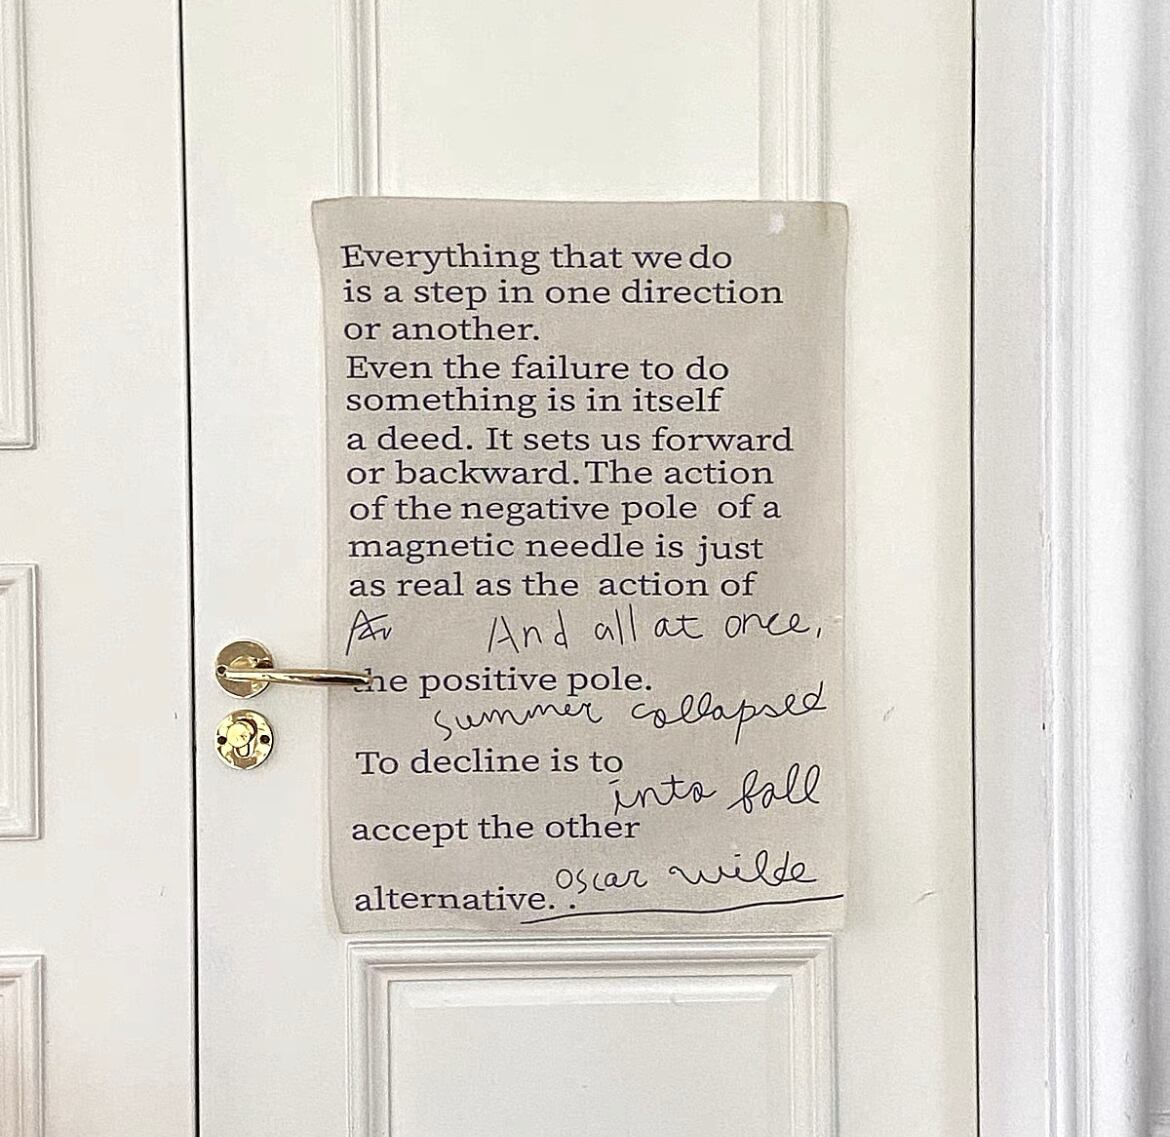 Everything that we do
is a step in one direction
or another.
Even the failure to do
something is in itself
a deed. It sets us forward
or backward. The action
of the negative pole of a
magnetic needle is just
as real as the action of
And all at once,
the positive pole.
summer collapsed
To decline is to
into fall
accept the other
oscar wilde
alternative. .